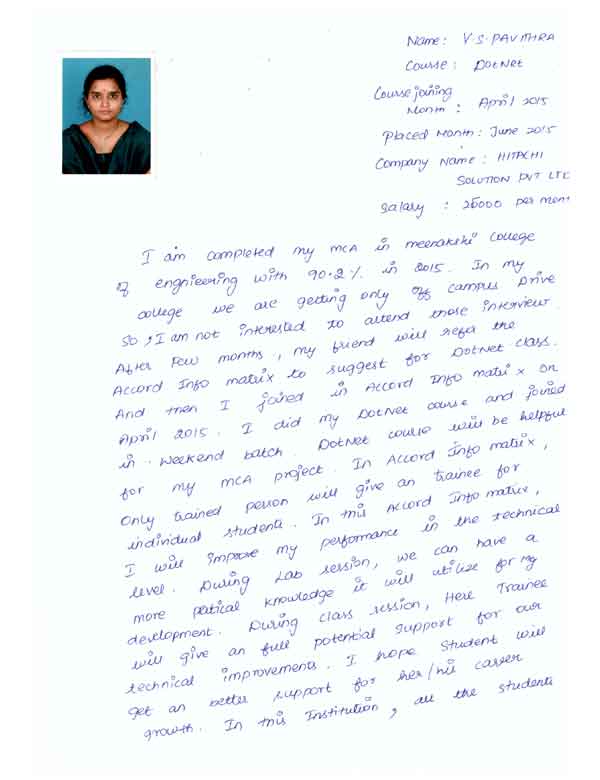 Name: V.S. PAVITHRA
Course: DotNet
Course joining
Month: April 2015
Placed Month: June 2015
Company Name: HITACHI
SOLUTION PVT LTD
Salary: 25000 per mon
I am completed my MCA in meenakshi college
of engnieering with 90.2% in 2015. In my
college we are getting only off campus Drive
so, I am not interested to attend those interview.
After Few months, my friend will refer the
Accord Info matrix to suggest for DotNet class.
And then I joined in Accord Info matrix on
April 2015. I did my DotNet course and joined
in weekend batch. DotNet course will be helpful
for my MCA project. In Accord Info matrix,
Only trained person will give an trainee for
individual students. In this Accord Info matrix,
I will improve my performance in the technical
level. During Lab session, we can have a
more pratical knowledge it will utilize for my
development. During class session, Here Trainee
will give an full potential support for our
technical improvements. I hope Student will
get an better support for her/his career
growth. In this Institution, all the students